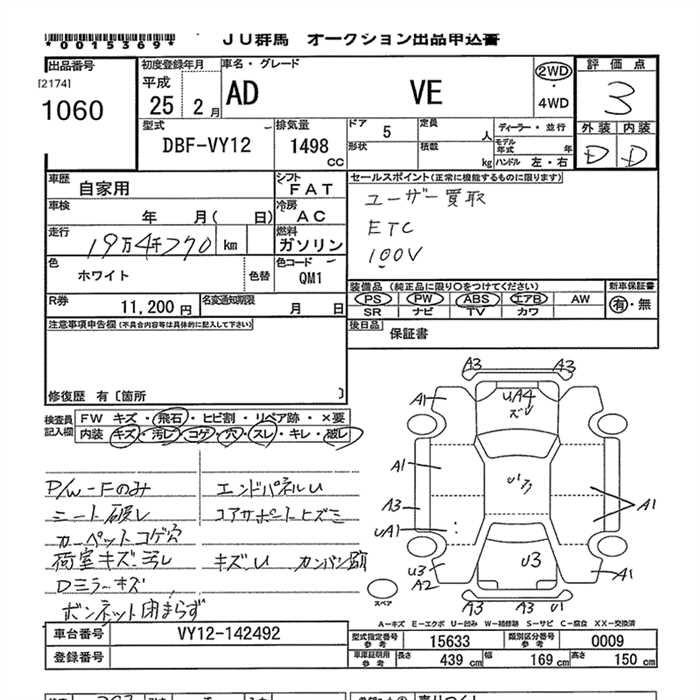 *0015369*
JU群馬 オークション出品申込書
出品番号
[2174]
1060
初度登録年月
平成
25 2月
車名・グレード
AD VE
2WD
・
4WD
評価点
3
外装 内装
D D
型式
DBF-VY12
排気量
1498
cc
ドア 5
定員 人
形状
積載 kg
ディーラー・並行
モデル年式 年
ハンドル 左・右
車歴
自家用
シフト
FAT
車検
年 月( 日)
冷房
AC
走行
19万4千770 km
燃料
ガソリン
色
ホワイト
色替
色コード
QM1
R券
11,200円
名変通知期限
月 日
セールスポイント(正常に機能するものに限ります)
ユーザー買取
ETC
100V
装備品 (純正品に限り○をつけてください)
PS PW ABS エアB AW
SR ナビ TV カワ
新車保証書
有・無
後日品
保証書
注意事項申告欄(不具合内容等は具体的に記入して下さい)
修復歴 有〔箇所 〕
検査員
記入欄
FW キズ・飛石・ヒビ割・リペア跡・×要
内装 キズ・汚レ・コゲ・穴・スレ・キレ・破レ
P/W-Fのみ
シート破レ
カーペットコゲ穴
荷室キズ.汚レ
Dミラーキズ
ボンネット閉まらず
エンドパネルU
コアサポートヒズミ
キズU カンバン跡
A3 A3
A1
UA4
ズ
A1
A3
UA1
U3
A2
A1
U3
A1
A3 A3 U1
スペア
A-キズ E-エクボ U-凹み W-補修跡 S-サビ C-腐食 XX-交換済
車台番号
VY12-142492
登録番号
型式指定番号
参考
15633
類別区分番号
参考
0009
車庫証明用
参考
長さ 439 cm
幅 169 cm
高さ 150 cm